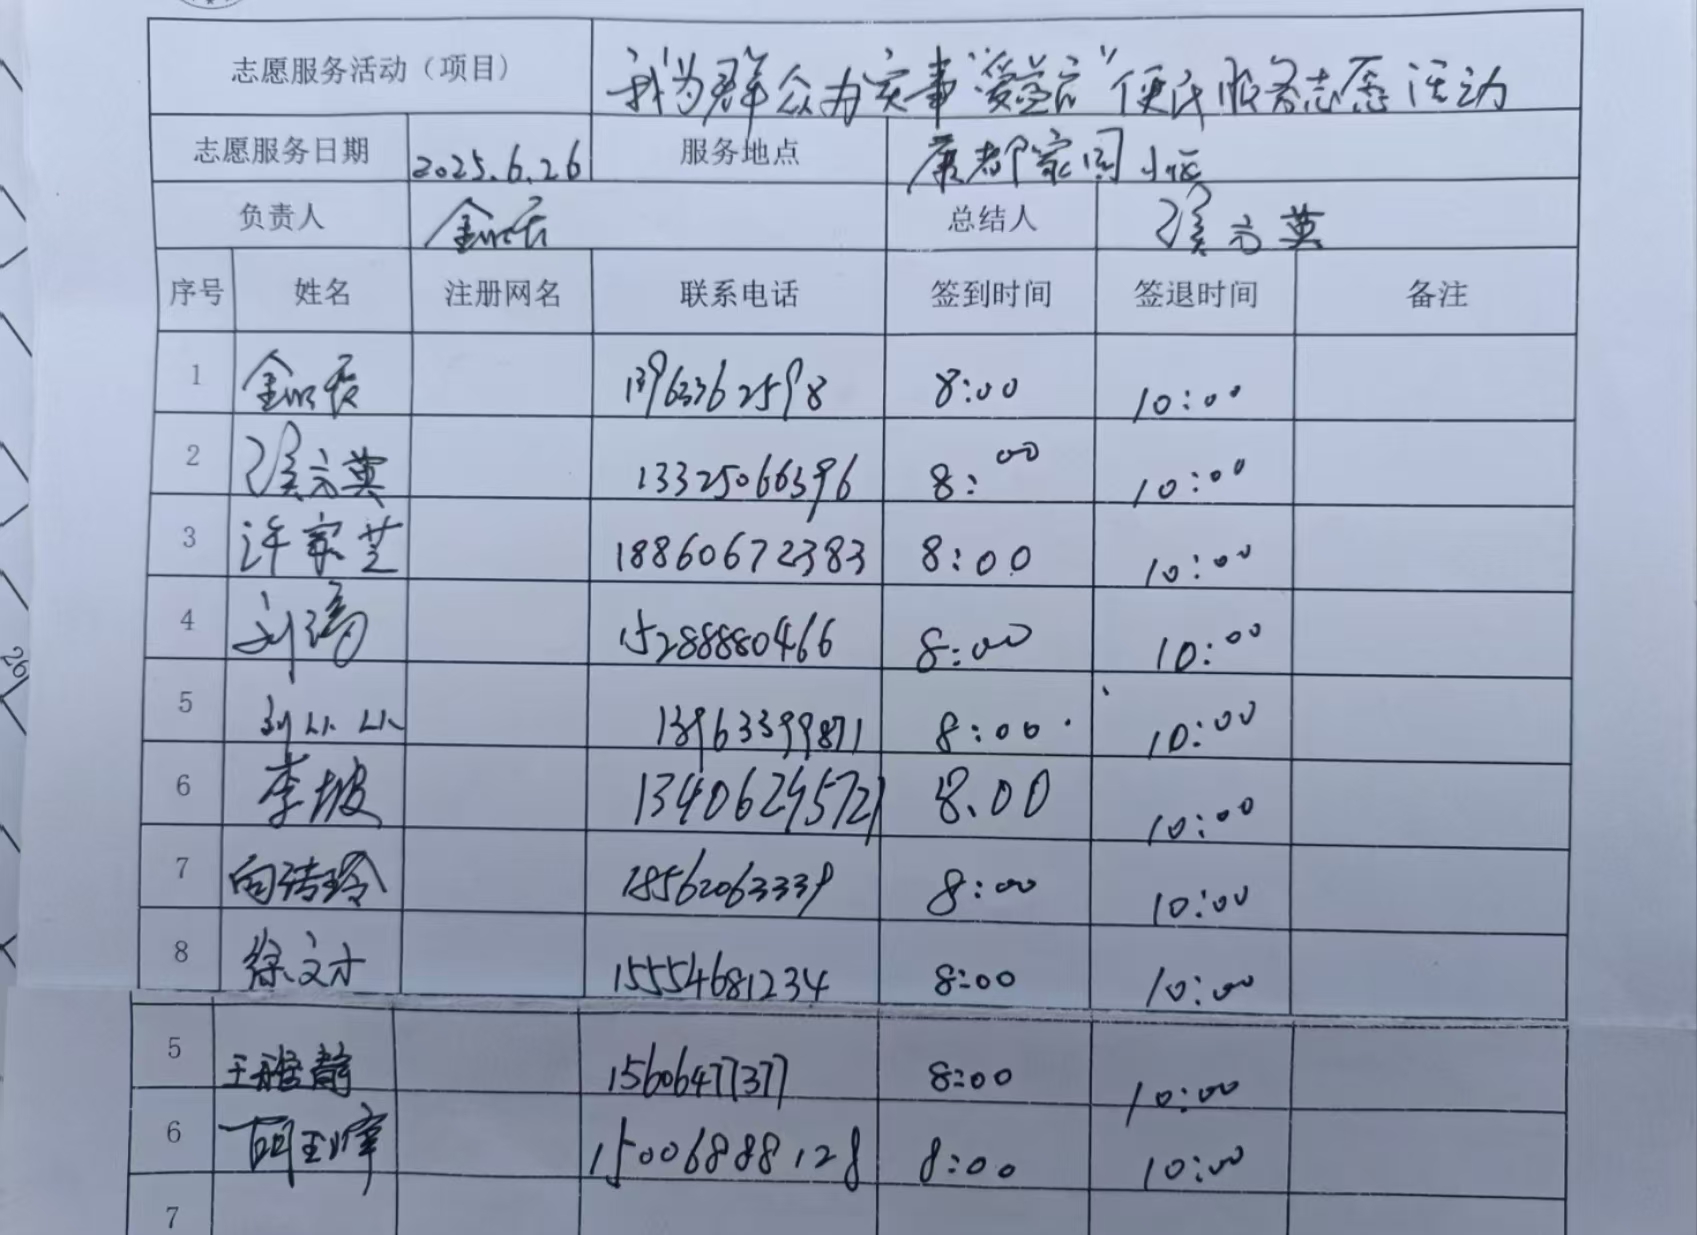 志愿服务活动（项目） 我为群众办实事"爱益言"便民服务志愿活动
志愿服务日期 2025.6.26 服务地点 康都家园小区
负责人 总结人
序号 姓名 注册网名 联系电话 签到时间 签退时间 备注
1 13963362598 8:00 10:00
2 13325066396 8:00 10:00
3 许家芝 18860672383 8:00 10:00
4 刘 15288880466 8:00 10:00
5 刘 13963399871 8:00 10:00
6 李坡 8.00 10:00
7 向 18562063339 8:00 10:00
8 徐文才 15554681234 8:00 10:00
5 王雅静 15606477377 8:00 10:00
6 15006888128 8:00 10:00
7
26